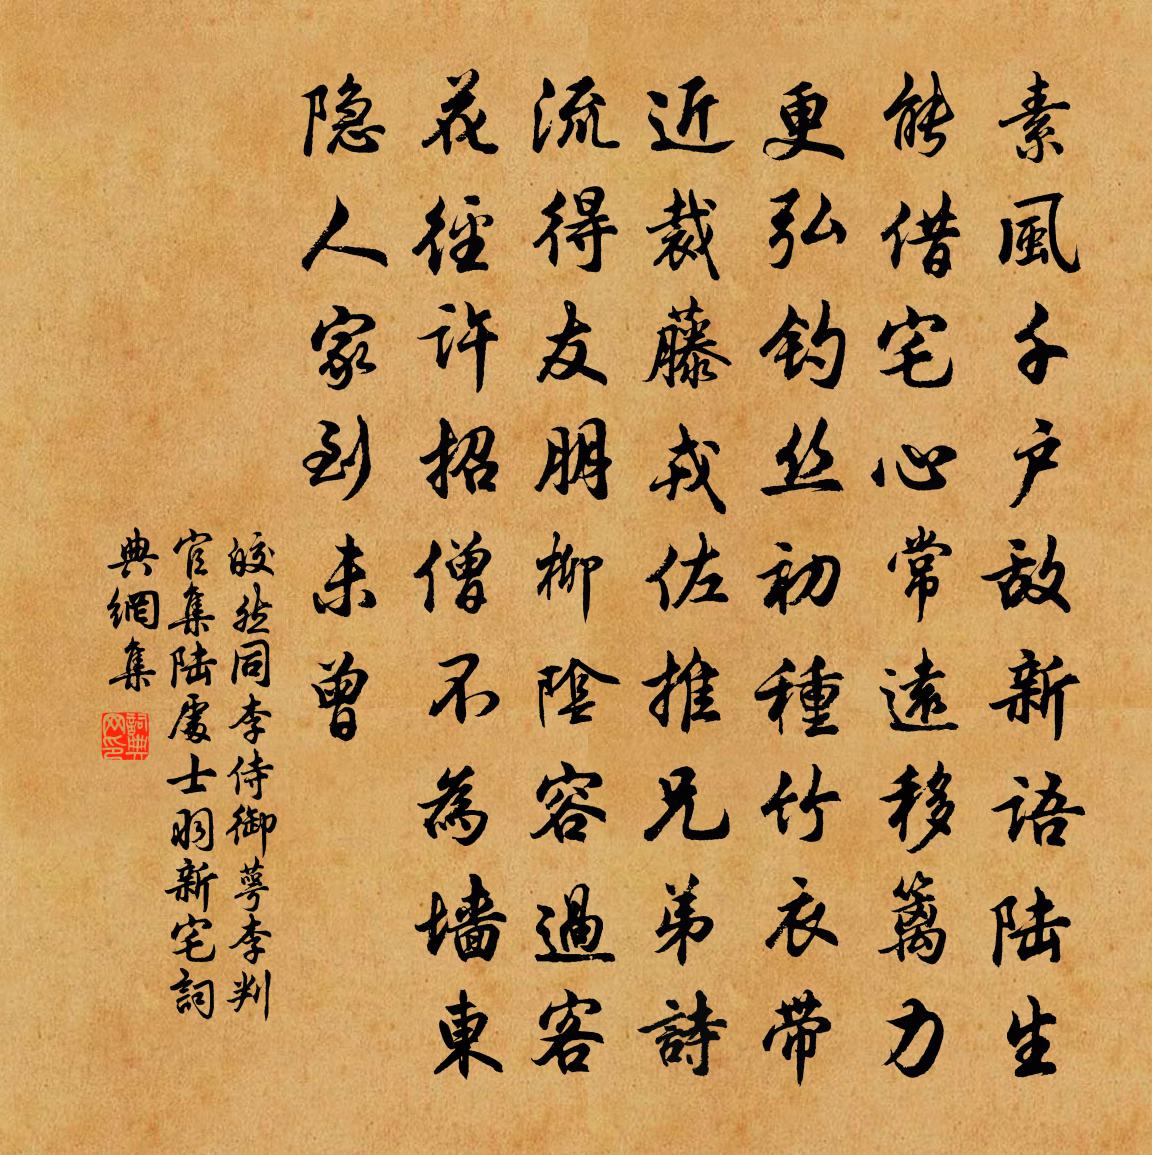 素風千户敌新語陆生
能借宅心常遠移篱力
更弘钓丝初種竹衣带
近裁藤戎佐推兄弟詩
流得友朋柳陰容過客
花徑許招僧不為墙東
隐人家到未曾
皎然同李侍御萼李判
官集陆處士羽新宅詞
典網集
詞典网印